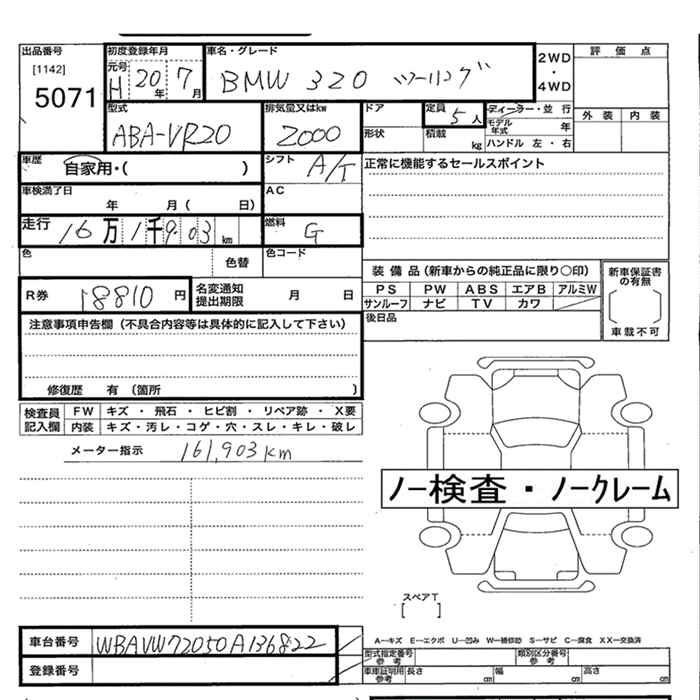 出品番号
[1142]
5071
初度登録年月
元号
H 20 年 7 月
車名・グレード
BMW 320 ツーリング
2WD
・
4WD
評 価 点
外 装 内 装
型式
ABA-VR20
排気量又はkw
2000
ドア
形状
定員
5 人
積載
kg
ディーラー・並 行
モデル年式 年
ハンドル 左・右
車歴
自家用・( )
シフト
A/T
正常に機能するセールスポイント
車検満了日
年 月 ( 日)
AC
走行
16 万 1 千 9 03 km
燃料
G
色
色替
色コード
装 備 品 (新車からの純正品に限り〇印)
PS PW ABS エアB アルミW
サンルーフ ナビ TV カワ
新車保証書
の有無
車載不可
R券
18810 円
名変通知
提出期限
月 日
後日品
注意事項申告欄 (不具合内容等は具体的に記入して下さい)
修復歴 有 (箇所 )
検査員
記入欄
FW キズ ・ 飛石 ・ ヒビ割 ・ リペア跡 ・ X要
内装 キズ・汚レ・コゲ・穴・スレ・キレ・破レ
メーター指示 161,903km
ノー検査・ノークレーム
スペアT
[ ]
車台番号 WBAVW72050A136822
登録番号
A―キズ E―エクボ U―凹み W―補修跡 S―サビ C―腐食 XX―交換済
型式指定番号
参 考
類別区分番号
参 考
車庫証明用
参考
長さ cm 幅 cm 高さ cm